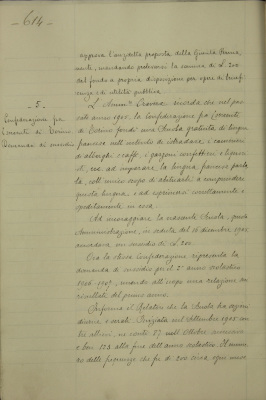 - 614 -
approva l'analoga proposta della Giunta Perma-
nente, mandando prelevarsi la somma di L. 200
dal fondo a propria disposizione per opere di benefi-
cenza e di utilità pubblica.
- 5 -
Confederazione fra
Camerieri di Torino
Domanda di sussidio
L' ricorda che nel pas-
sato anno 1905 la Confederazione fra Camerieri
di Torino fondò una Scuola gratuita di lingua
francese nell'intento di camerieri
di alberghi e caffè, i garzoni confettieri e liquori-
sti, ad imparare la lingua francese parla-
ta, coll'unico scopo di abituarli a comprendere
questa lingua, e ad esprimersi correttamente e
speditamente in essa.
Ad incoraggiare la nascente Scuola, questa
Amministrazione, in seduta del 16 dicembre 1905
accordava un sussidio di L. 200.
Ora la stessa Confederazione ripresenta la
domanda di sussidio per il 2° anno scolastico
1906-1907, unendo all'uopo una relazione sui
risultati del primo anno.
Informa il Relatore che la Scuola ha sezioni
diurne e serali. Iniziata nel settembre 1905 con
allievi, ne contò 87 nell'Ottobre successivo
e ben 123 alla fine dell'anno scolastico. Il nume-
ro delle presenze che fu di 200 circa ogni mese